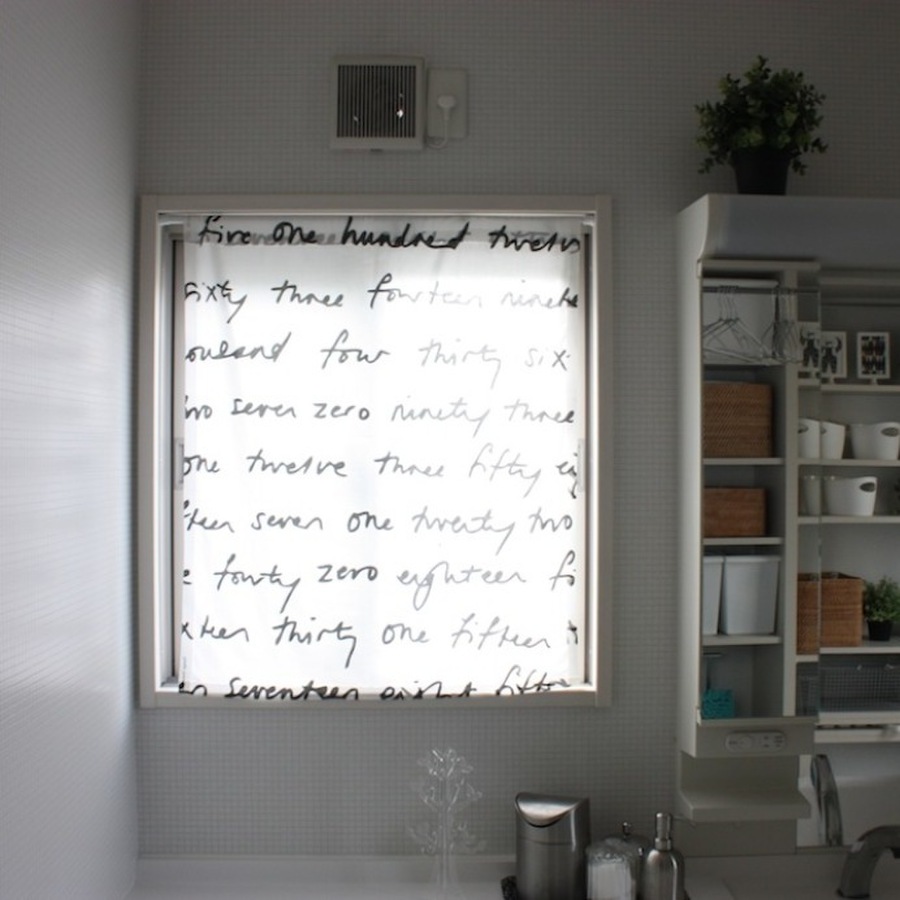 five one hundred twelve
sixty three fourteen ninete
ousand four thirty six
two seven zero ninety three
one twelve three fifty ei
fteen seven one twenty two
e fourty zero eighteen fi
xteen thirty one fifteen t
en seventeen eight fifte